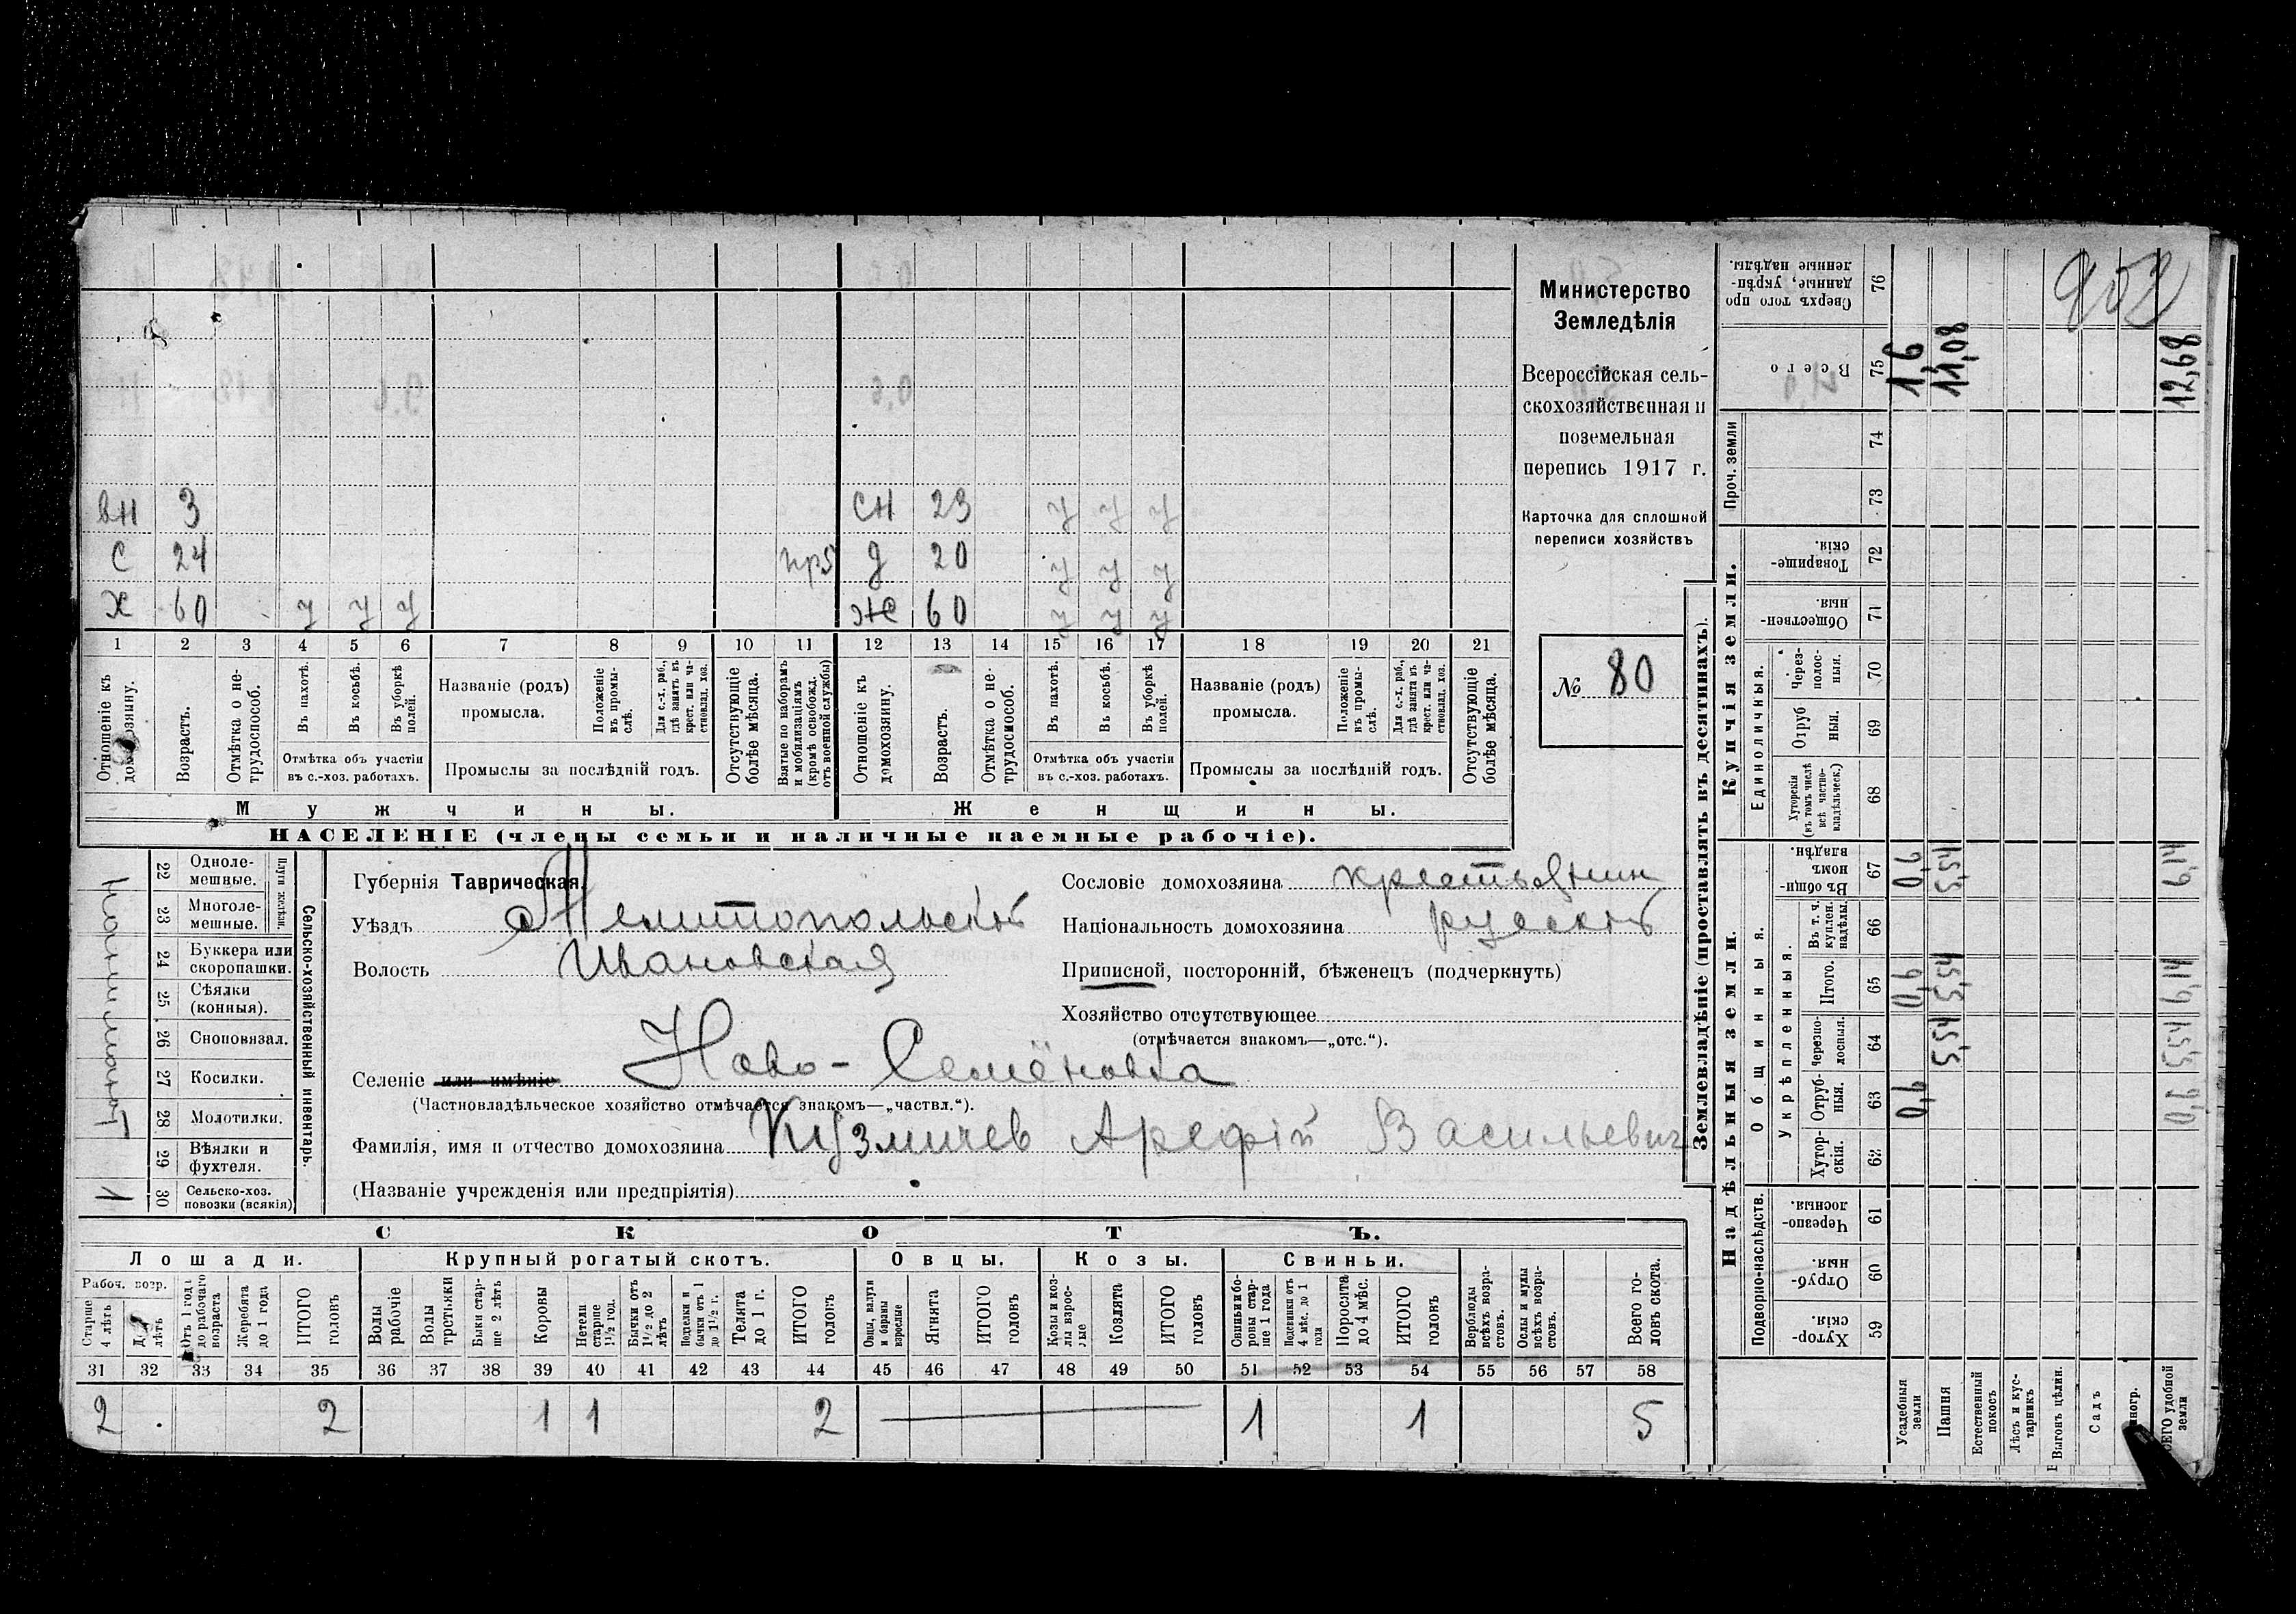 902
Министерство
Земледѣлія
Всероссійская сель-
скохозяйственная и
поземельная
перепись 1917 г.
Карточка для сплошной
переписи хозяйствъ
№ 80
вн 3 сн 23 у у у
с 24 пр5 д 20 у у у
х 60 у у у ж 60 у у у
1 2 3 4 5 6 7 8 9 10 11 12 13 14 15 16 17 18 19 20 21
Отношеніе къ домохозяину.
Возрастъ.
Отмѣтка о не-трудоспособ.
Въ пахотѣ.
Въ косьбѣ.
Въ уборкѣ полей.
Отмѣтка объ участіи
въ с.-хоз. работахъ.
Названіе (родъ)
промысла.
Положеніе въ промы-слѣ.
Для с.-х. раб., гдѣ занятъ въ крест. или ча-стновлад. хоз.
Промыслы за послѣдній годъ.
Отсутствующіе болѣе мѣсяца.
Взятые по наборамъ и мобилизаціямъ (кромѣ освобожд. отъ военной службы)
Отношеніе къ домохозяину.
Возрастъ.
Отмѣтка о не-трудоспособ.
Въ пахотѣ.
Въ косьбѣ.
Въ уборкѣ полей.
Отмѣтка объ участіи
въ с.-хоз. работахъ.
Названіе (родъ)
промысла.
Положеніе въ промы-слѣ.
Для с.-х. раб., гдѣ занята въ крест. или ча-стновлад. хоз.
Промыслы за послѣдній годъ.
Отсутствующіе болѣе мѣсяца.
Мужчины. Женщины.
НАСЕЛЕНІЕ (члены семьи и наличные наемные рабочіе).
Сельско-хозяйственный инвентарь.
Плуги желѣзн.
22 Одноле-мешные.
23 Многоле-мешные.
24 Буккера или скоропашки.
25 Сѣялки (конныя).
26 Сноповязал.
27 Косилки.
28 Молотилки.
29 Вѣялки и фухтеля.
1 30 Сельско-хоз. повозки (всякія)
Губернія Таврическая.
Уѣздъ Мелитопольскій
Волость Ивановская
Селеніе или имѣніе Ново-Семёновка
(Частновладѣльческое хозяйство отмѣчается знакомъ—„частвл.“).
Фамилія, имя и отчество домохозяина Кузмичев Арефій Васильевич
(Названіе учрежденія или предпріятія)
Сословіе домохозяина крестьянин
Національность домохозяина русскій
Приписной, посторонній, бѣженецъ (подчеркнуть)
Хозяйство отсутствующее
(отмѣчается знакомъ—„отс.“).
СКОТЪ.
Лошади. Крупный рогатый скотъ. Овцы. Козы. Свиньи.
Рабоч. возр.
Старше 4 лѣтъ
лѣтъ
Отъ 1 года до рабочаго возраста
Жеребята до 1 года
ИТОГО головъ
Волы рабочіе
Волы третьяки
Быки стар-ше 2 лѣтъ
Коровы
Нетели старше 1½ год.
Бычки отъ 1½ до 2 лѣтъ
Подтелки и бычки отъ 1 до 1½ г.
Телята до 1 г.
ИТОГО головъ
Овцы, валухи и бараны взрослые
Ягнята
ИТОГО головъ
Козы и коз-лы взрос-лые
Козлята
ИТОГО головъ
Свиньи и бо-ровы стар-ше 1 года
Подсвинки отъ 4 мѣс. до 1 года
Поросята до 4 мѣс.
ИТОГО головъ
Верблюды всѣхъ возра-стовъ.
Ослы и мулы всѣхъ возра-стовъ.
Всего го-ловъ скота.
31 32 33 34 35 36 37 38 39 40 41 42 43 44 45 46 47 48 49 50 51 52 53 54 55 56 57 58
2 2 1 1 2 1 1 5
Землевладѣніе (проставлять въ десятинахъ).
Надѣльныя земли. Купчія земли.
Подворно-наслѣдств.
Общинныя.
Укрѣпленныя.
Единоличныя.
Проч. земли
59 Хутор-скія.
60 Отруб-ныя.
61 Черезпо-лосныя.
62 Хутор-скія.
63 Отруб-ныя. 0,6 0,6
64 Черезпо-лосныя. 5,54 5,54
65 Итого. 0,6 5,54 6,14
66 Въ т. ч. куплен. надѣлы.
67 Въ общин-номъ владѣн. 0,6 5,54 6,14
68 Хуторскія (въ томъ числѣ всѣ частно-владѣльческ.)
69 Отруб ныя.
70 Через-полос-ныя.
71 Обществен-ныя.
72 Товарище-скія.
73
74
75 Всего 1,6 11,08 12,68
76 Сверхъ того про данные, укрѣп-ленные надѣлы.
Усадебныя земли
Пашня
Естественный покосъ
Лѣсъ и кус-тарникъ
Выгонъ цѣлин.
Садъ
удобной земли